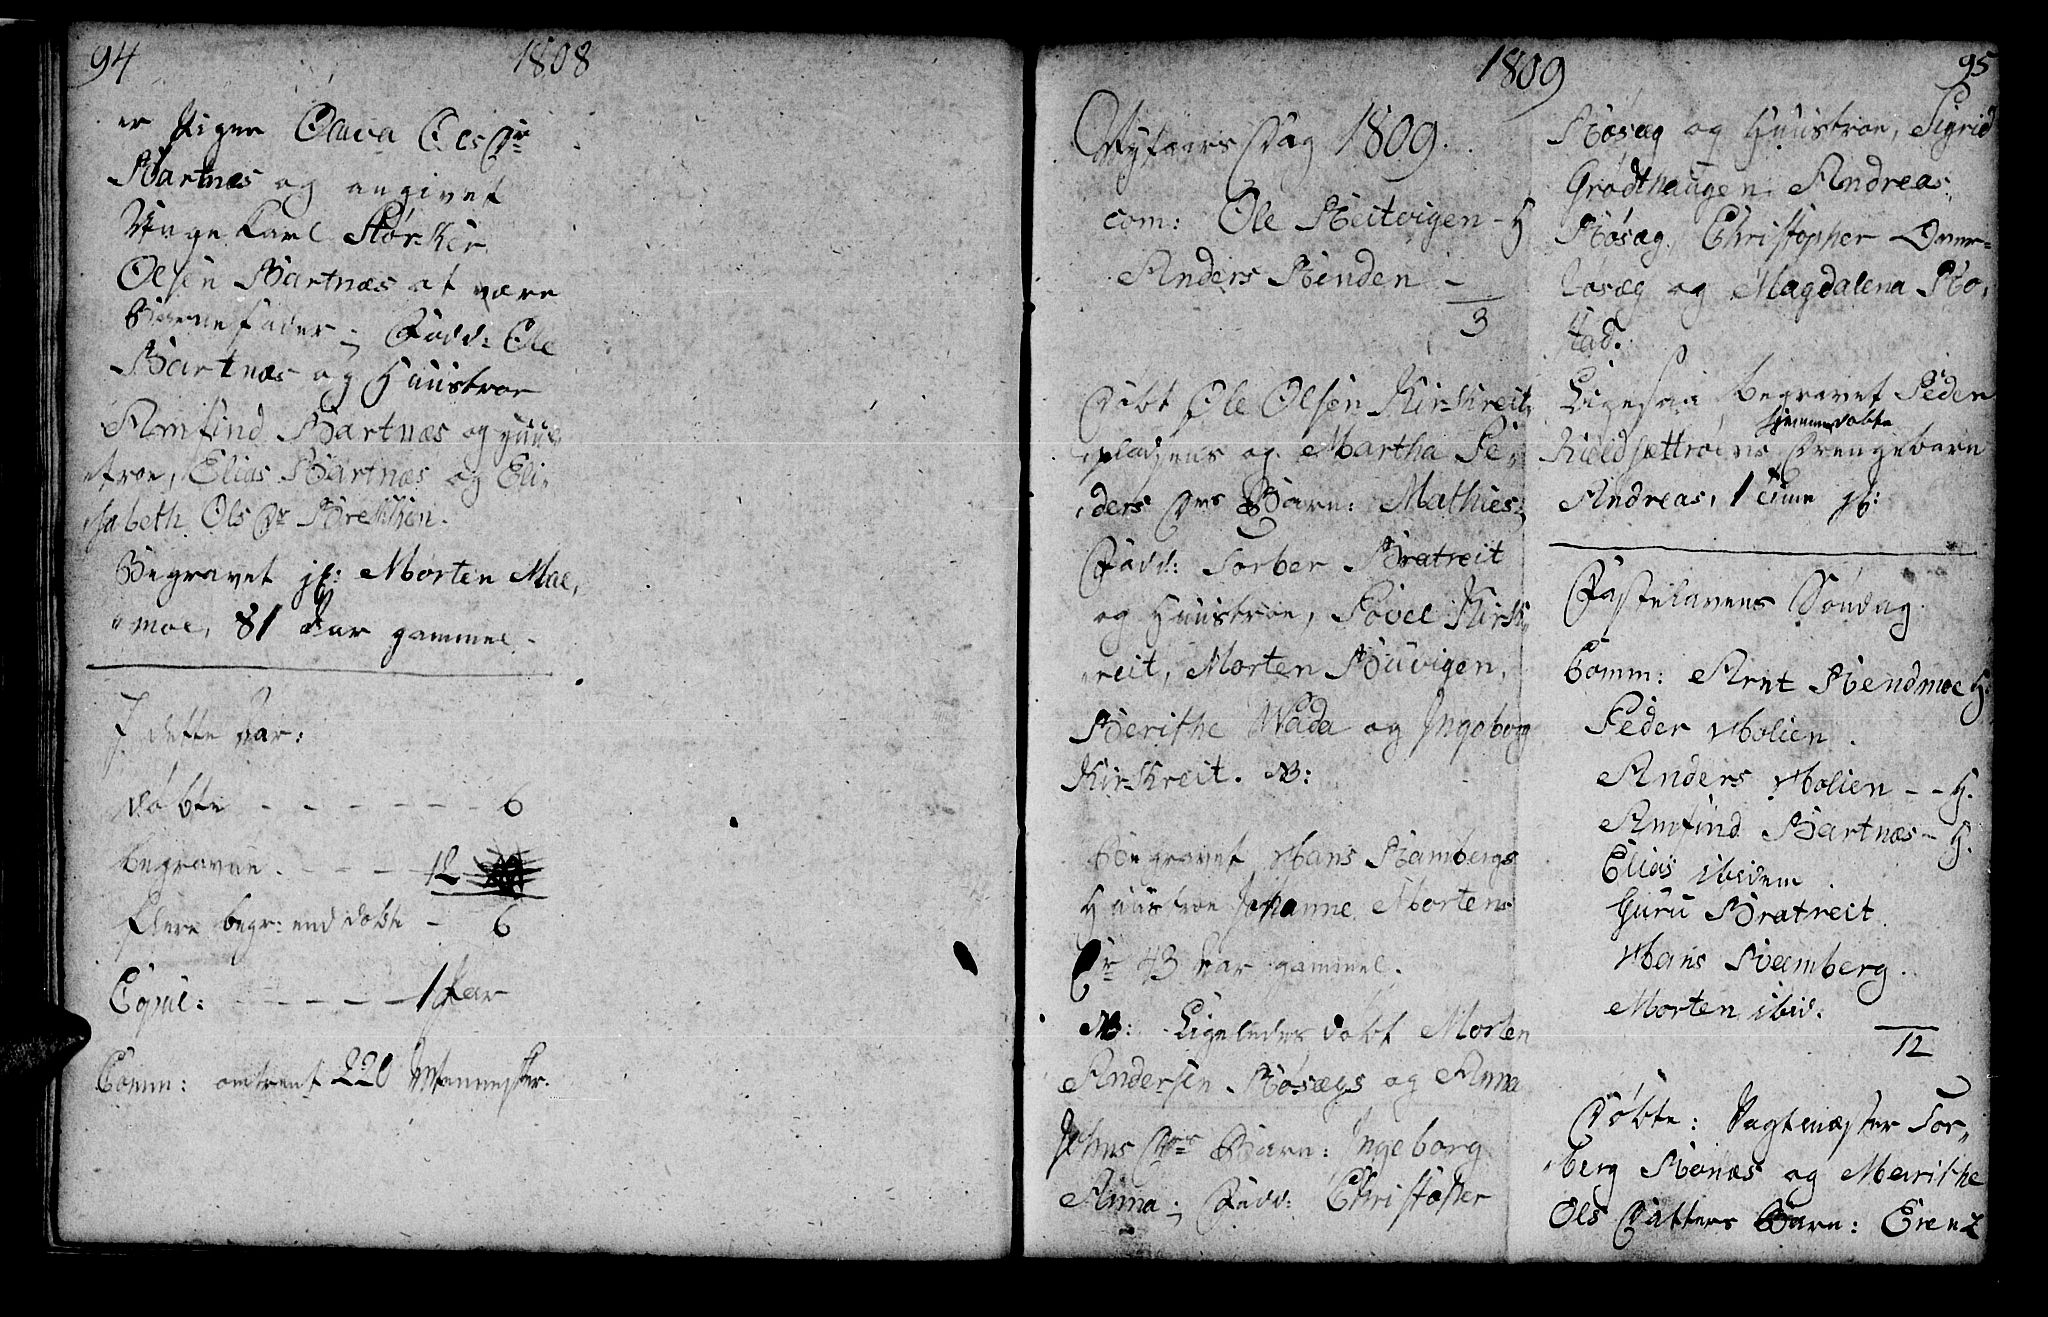 94
1808
er Pigen Olava Ols Dr
Bartnæs og angivet
Unge Karl Størker
Olsen Bartnæs at være
Barnefader; Fadd: Ole
Bartnæs og Huustroe
Arnfind Bartnæs og Huu„
stroe, Elias Bartnæs og Eli„
„sabeth Ols Dr Brekken.
Begravet jf: Morten Moe,
„moe, 81 Aar gammel.
I dette Aar:
døbte - - - - - - 6
begravne - - - - 12
flere begr: end døbte - 6
Copul: - - - - - 1 Par
Comm: omtrent 220 Mennesker.
1809
95
Nytaars Dag 1809.
com: Ole Reitvigen - H
Anders Renden -
3
Døbt Ole Olsen Kirkreit„
„pladsens og Martha Pe„
„ders Drs Barn: Mathies;
Fadd: Torber Bratreit
og Huustroe, Povel Kirk„
„reit, Morten Buvigen,
Berithe Wada og Ingeborg
Kirkreit. NB:
Begravet Hans Rambergs
Huustroe Johanne Mortens
Dr 43 Aar gammel.
NB: Ligeledes døbt Morten
Andersen Røsægs og Anna
Johns Drs Barn: Ingeborg
Anna; Fadd: Christopher
Røsæg og Huustroe, Sigrid
Grødthaugen, Andreas
Røsæg, Christopher Over„
røsæg og Magdalena Ro„
stad.
Ligesaa begravet Peder
hjemmedøbte
Kieldsættrøens Drengebarn
Andreas, 1 Time jf:
Fastelavens Søndag.
Comm: Arnt Rendmoe H:
Peder Molien.
Anders Molien - - H.
Arnfind Bartnæs - H.
Elias ibidem.
Guru Bratreit
Hans Ramberg.
Morten ibid:
12
Døbte: Vagtmester Tor„
„berg Ronæs og Marithe
Ols Datters Barn: Erenz